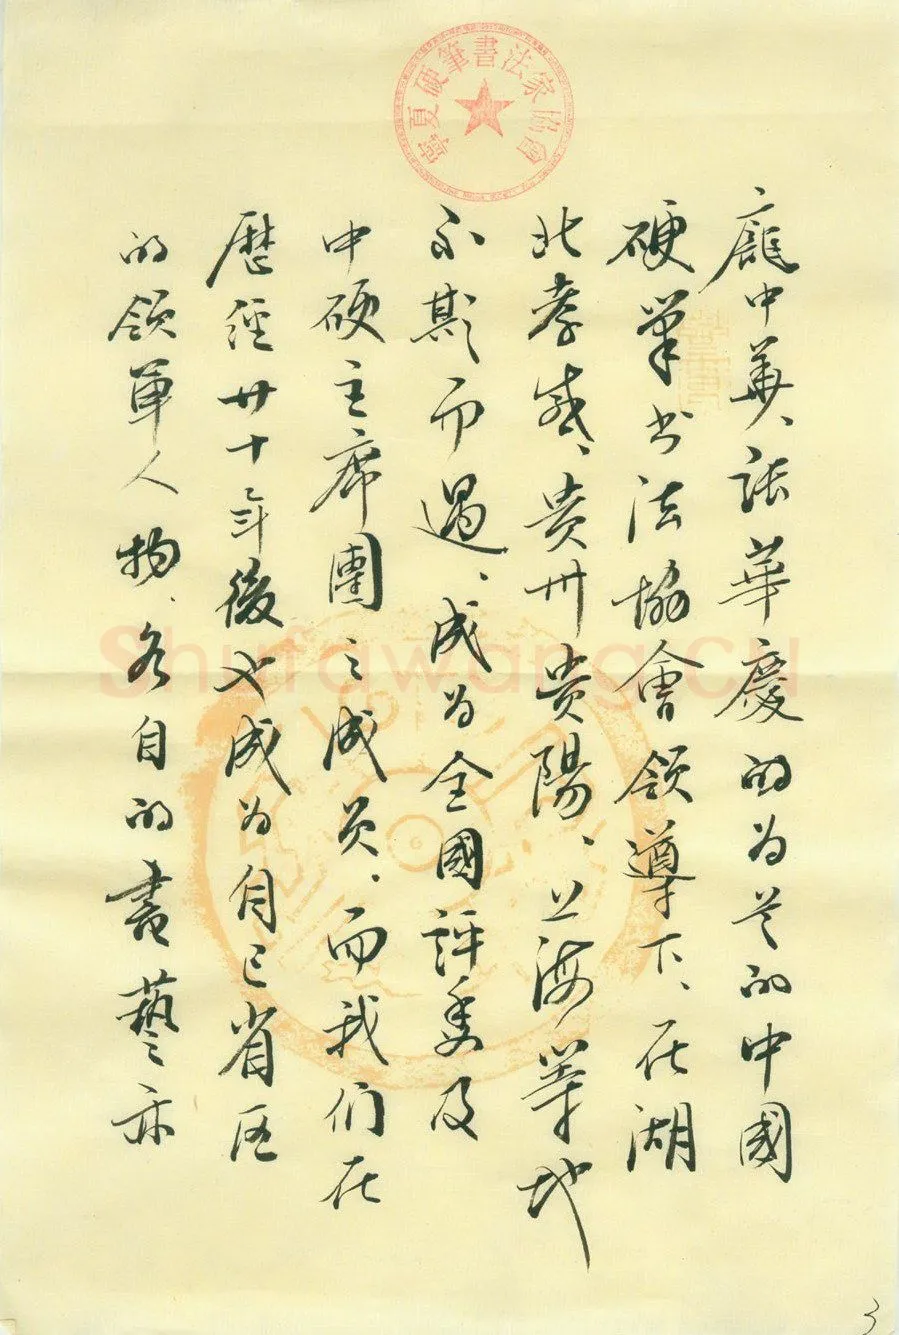 寧夏硬筆書法家協會
龐中華、張華慶的为首的中國
硬筆书法協會領導下、在湖
北孝感、贵州贵陽、上海等地
不期而遇、成为全國評委及
中硬主席團之成员、而我们在
歷經廿十年後也成为自己省区
的領軍人物、各自的書藝亦
Shufawang.CN
3